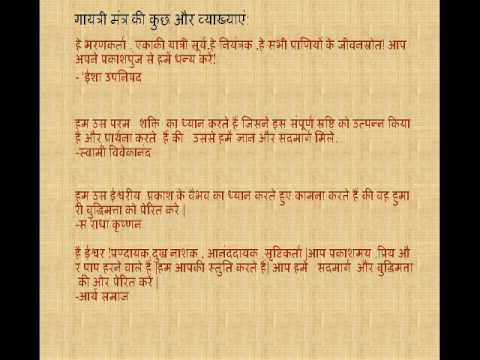 गायत्री मंत्र की कुछ और व्याख्याएं:
हे मरणकर्ता . एकाकी यात्री सूर्य,हे नियंत्रक ,हे सभी प्राणियों के जीवनस्रोत! आप
अपने प्रकाशपुंज से हमें धन्य करे!
- 'ईशा उपनिषद
हम उस परम शक्ति का ध्यान करते हैं जिसने इस संपूर्ण स्रष्टि को उत्पन्न किया
है और प्रार्थना करते हैं की उससे हमें ज्ञान और सदमार्ग मिले.
-स्वामी विवेकानंद
हम उस ईश्वरीय प्रकाश के वैभव का ध्यान करते हुए कामना करते हैं की वह हुमा
री बुद्धिमत्ता को प्रेरित करे |
-स राधा कृष्णन
हे ईश्वर !प्रण्दायक,दुख नाशक , आनंददायक ,सृष्टिकर्ता |आप प्रकाशमय ,प्रिय औ
र पाप हरने वाले हैं |हम आपकी स्तुति करते हैं| आप हमें सदमार्ग और बुद्धिमत्ता
की ओर प्रेरित करे |
-आर्य समाज